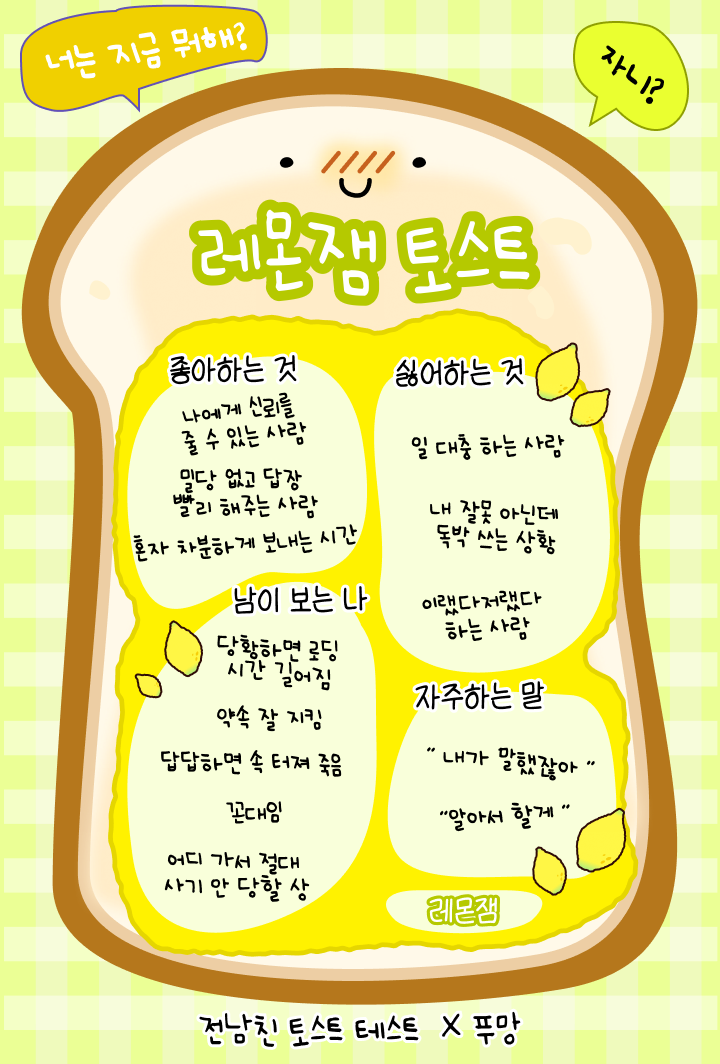 너는 지금 뭐해?
자니?
레몬잼 토스트
좋아하는 것
나에게 신뢰를
줄 수 있는 사람
밀당 없고 답장
빨리 해주는 사람
혼자 차분하게 보내는 시간
싫어하는 것
일 대충 하는 사람
내 잘못 아닌데
독박 쓰는 상황
이랬다저랬다
하는 사람
남이 보는 나
당황하면 로딩
시간 길어짐
약속 잘 지킴
답답하면 속 터져 죽음
꼰대임
어디 가서 절대
사기 안 당할 상
자주하는 말
" 내가 말했잖아 "
"알아서 할게 "
레몬잼
전남친 토스트 테스트 X 푸망